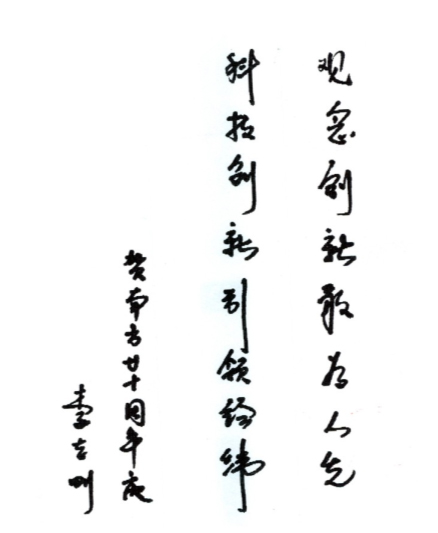 观念创新敢为人先
科技创新引领经纬
贺南方廿十周年庆
李志刚